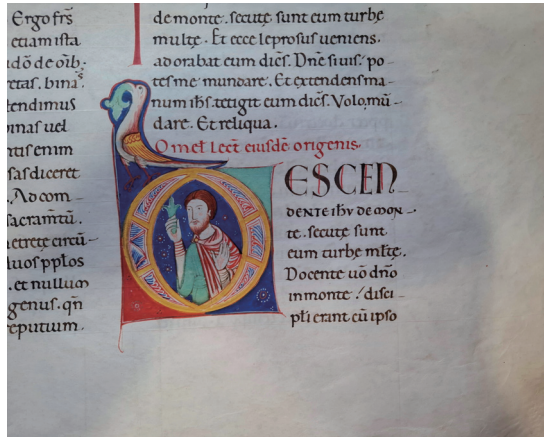 Ergo frs
etiam ista
udō de oīb;
retas. binas
tendimus
binas uel
ntis enim
sas diceret
. Ad com-
sacramtū.
circū-
luos pplos
. et nullum
genus. qn
reputium.
de monte. secutę sunt eum turbę
multę. Et ecce leprosus ueniens.
adorabat eum dices. Dnē si uis. po-
tes me mundare. Et extendens ma-
num ihs. tetigit eum dices. Volo. mū-
dare. Et reliqua.
Omel lect eiusdē origenis.
DESCEN
DENTE ihu de mon-
te. secutę sunt
eum turbę mltę.
Docente uō dnō
in monte. disci-
pli erant cū ipso